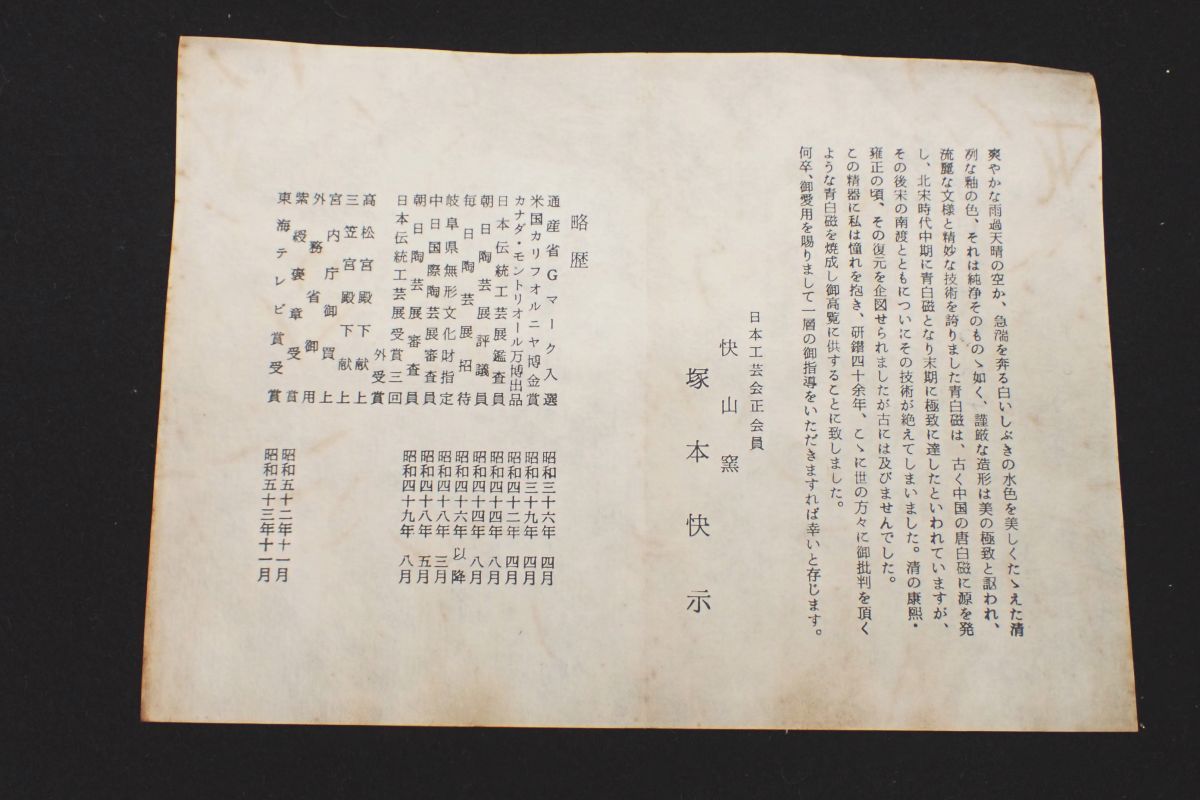 爽やかな雨過天晴の空か、急湍を奔る白いしぶきの水色を美しくたゝえた清
冽な釉の色、それは純浄そのものゝ如く、謹厳な造形は美の極致と謳われ、
流麗な文様と精妙な技術を誇りました青白磁は、古く中国の唐白磁に源を発
し、北宋時代中期に青白磁となり末期に極致に達したといわれていますが、
その後宋の南渡とともについにその技術が絶えてしまいました。清の康熙・
雍正の頃、その復元を企図せられましたが古には及びませんでした。
この精器に私は憧れを抱き、研鑽四十余年、こゝに世の方々に御批判を頂く
ような青白磁を焼成し御高覧に供することに致しました。
何卒、御愛用を賜りまして一層の御指導をいただきますれば幸いと存じます。
日本工芸会正会員
快山窯
塚本快示
略歴
通産省Gマーク入選 昭和三十六年 四月
米国カリフオルニヤ博金賞 昭和三十九年 四月
カナダ・モントリオール万博出品 昭和四十二年 四月
日本伝統工芸展鑑査員 昭和四十四年 八月
朝日陶芸展評議員 昭和四十四年 八月
毎日陶芸展招待 昭和四十六年以降
岐阜県無形文化財指定 昭和四十八年 三月
中日国際陶芸展審査員 昭和四十八年 五月
朝日陶芸展審査員 昭和四十九年 八月
日本伝統工芸展受賞三回
外受賞
高松宮殿下献上
三笠宮殿下献上
宮内庁御買上
外務省御用
紫綬褒章受賞 昭和五十二年十一月
東海テレビ賞受賞 昭和五十三年十一月